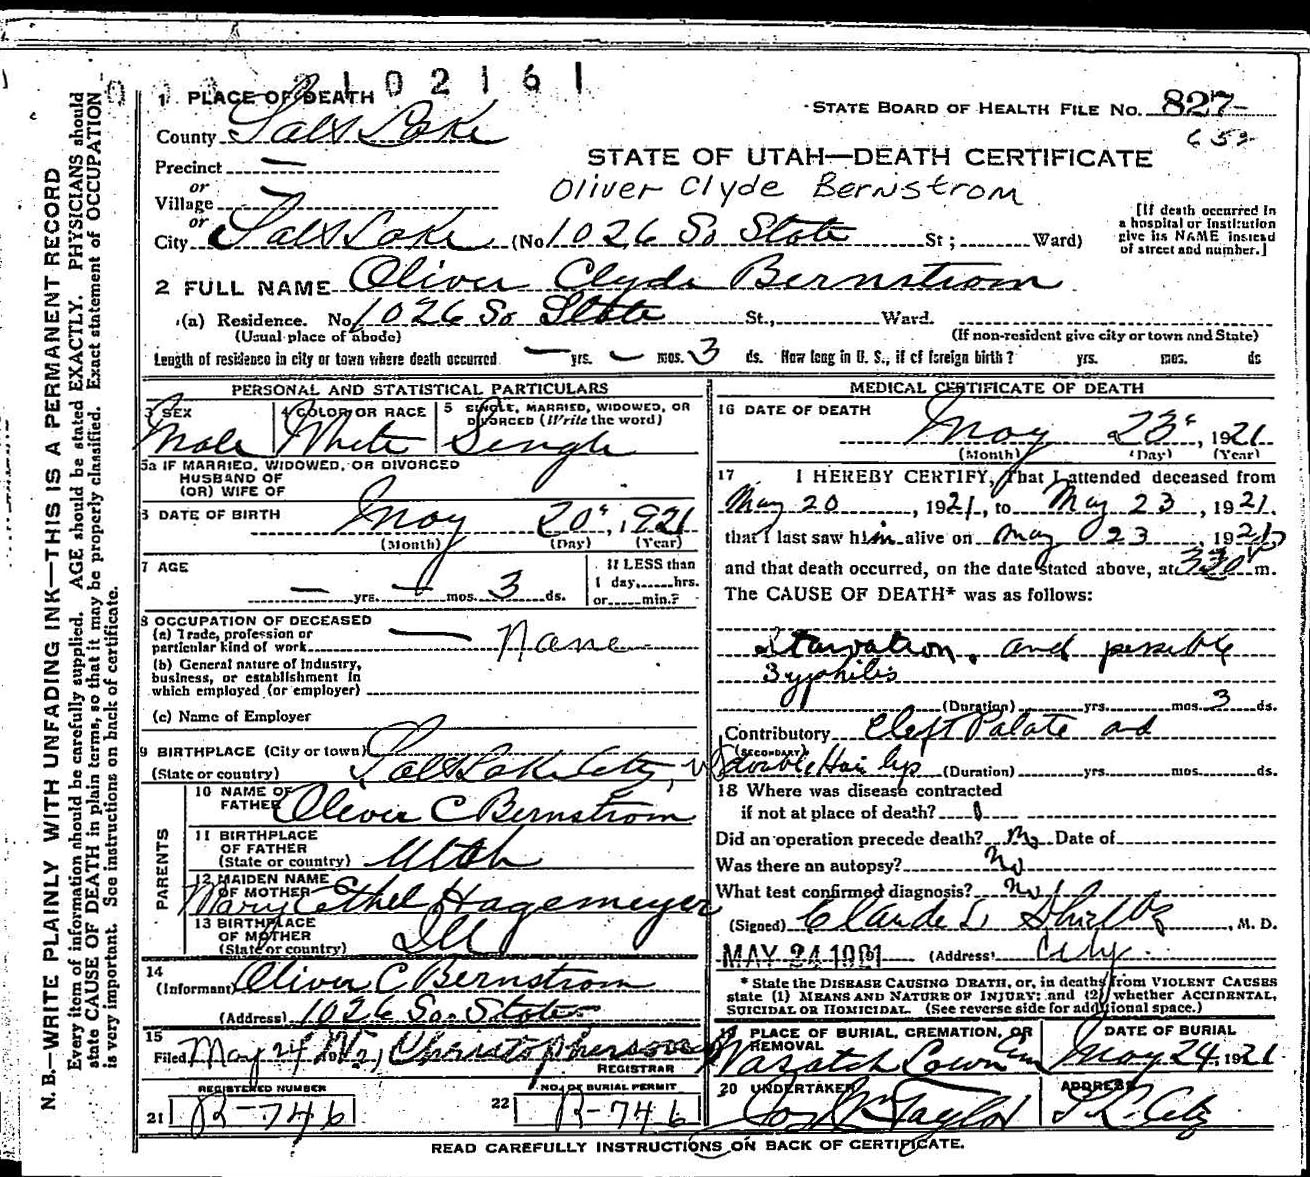 2102161
1 PLACE OF DEATH
STATE BOARD OF HEALTH FILE No. 827-
County Salt Lake
652
Precinct —
STATE OF UTAH—DEATH CERTIFICATE
or
Village —
Oliver Clyde Bernstrom
or
City Salt Lake (No 1026 So State St; Ward)
[If death occurred in
a hospital or Institution
give its NAME instead
of street and number.]
2 FULL NAME Oliver Clyde Bernstrom
(a) Residence. No. 1026 So State St., Ward.
(Usual place of abode) (If non-resident give city or town and State)
Length of residence in city or town where death occurred — yrs. — mos. 3 ds. How long in U. S., if of foreign birth? yrs. mos. ds
PERSONAL AND STATISTICAL PARTICULARS
3 SEX
Male
4 COLOR OR RACE
White
5 SINGLE, MARRIED, WIDOWED, OR
DIVORCED (Write the word)
Single
5a IF MARRIED, WIDOWED, OR DIVORCED
HUSBAND OF
(OR) WIFE OF
6 DATE OF BIRTH May 20", 1921
(Month) (Day) (Year)
7 AGE
— yrs. — mos. 3 ds.
If LESS than
1 day, hrs.
or min.?
8 OCCUPATION OF DECEASED
(a) Trade, profession or
particular kind of work — None
(b) General nature of Industry,
business, or establishment in
which employed (or employer)
(c) Name of Employer
9 BIRTHPLACE (City or town)
(State or country) Salt Lake City, U
PARENTS
10 NAME OF
FATHER Oliver C Bernstrom
11 BIRTHPLACE
OF FATHER
(State or country) Utah
12 MAIDEN NAME
OF MOTHER Mary Ethel Hagemeyer
13 BIRTHPLACE
OF MOTHER
(State or country) Ill
14
(Informant) Oliver C Bernstrom
(Address) 1026 So. State
15
Filed May 24, 1921 Christophersen
REGISTRAR
REGISTERED NUMBER
21 B-746
NO. OF BURIAL PERMIT
22 B-746
MEDICAL CERTIFICATE OF DEATH
16 DATE OF DEATH
May 23", 1921
(Month) (Day) (Year)
17 I HEREBY CERTIFY, That I attended deceased from
May 20, 1921, to May 23, 1921
that I last saw him alive on May 23, 1921,
and that death occurred, on the date stated above, at 330 P m.
The CAUSE OF DEATH* was as follows:
Starvation, and possible
Syphilis
(Duration) yrs. mos. 3 ds.
Contributory Cleft Palate ad
(SECONDARY)
double Hair lip (Duration) yrs. mos. ds.
18 Where was disease contracted
if not at place of death?
Did an operation precede death? No Date of
Was there an autopsy? No
What test confirmed diagnosis? No
(Signed) Claude L Shields, M. D.
MAY 24 1921 (Address) City
* State the DISEASE CAUSING DEATH, or, in deaths from VIOLENT CAUSES
state (1) MEANS AND NATURE OF INJURY; and (2) whether ACCIDENTAL,
SUICIDAL OR HOMICIDAL. (See reverse side for additional space.)
19 PLACE OF BURIAL, CREMATION, OR
REMOVAL
Wasatch Lawn Cem
DATE OF BURIAL
May 24, 1921
20 UNDERTAKER
Jos Wm Taylor
ADDRESS
S L City
READ CAREFULLY INSTRUCTIONS ON BACK OF CERTIFICATE.
N. B.—WRITE PLAINLY WITH UNFADING INK—THIS IS A PERMANENT RECORD
Every item of information should be carefully supplied. AGE should be stated EXACTLY. PHYSICIANS should
state CAUSE OF DEATH in plain terms, so that it may be properly classified. Exact statement of OCCUPATION
is very important. See instructions on back of certificate.